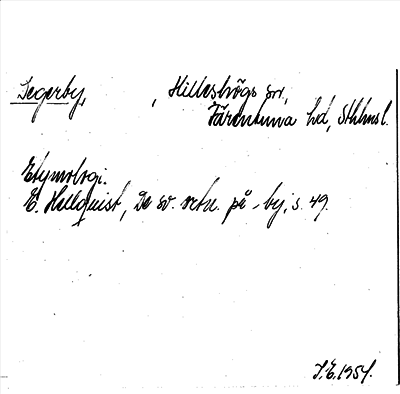 Segerby, , Hilleshögs sn,
Färentuna hd, Sthlmsl.
Etymologi.
E. Hellquist, De sv. ortn. på -by, s. 49.
J.E. 1954.